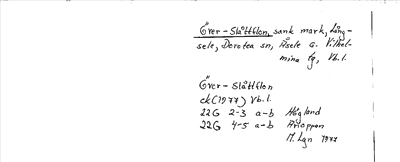 Över-Slåttflon, sank mark, Lång-
sele, Dorotea sn, Åsele o. Vilhel-
mina tg, Vb.l.
Över-Slåttflon
ek(1977) Vb.l.
22G 2-3 a-b Högland
22G 4-5 a-b
M. Lgn 1977